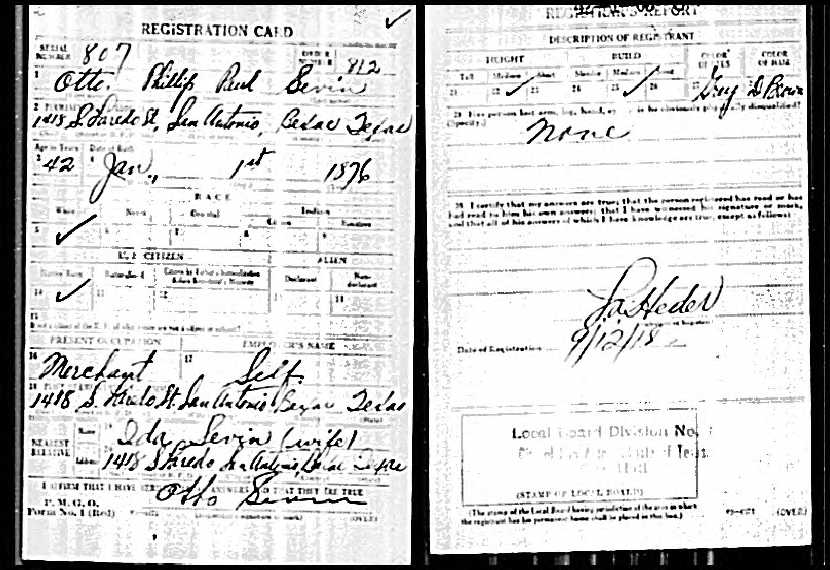 REGISTRATION CARD
SERIAL NUMBER 807 ORDER NUMBER 812
1 Otto. Phillip Paul Sevin
2 PERMANENT
1418 S Laredo St, San Antonio, Bexar Texas
Age in Years Date of Birth
3 42 4 Jan., 1st 1876
RACE
White Negro Oriental Indian
Citizen Noncitizen
5 ✓ 6 7 8 9
U. S. CITIZEN ALIEN
Native Born Naturalized Citizen by Father's Naturalization Before Registrant's Majority Declarant Non-declarant
10 ✓ 11 12 13 14
15
If not a citizen of the U. S., of what country are you a citizen or subject?
PRESENT OCCUPATION EMPLOYER'S NAME
16 Merchant 17 Self.
18
1418 S. Laredo St. San Antonio Bexar Texas
NEAREST RELATIVE
Name 19 Ida Sevin (wife)
Address 20 1418 S Laredo San Antonio, Bexar Texas
I AFFIRM THAT I HAVE VERIFIED ABOVE ANSWERS AND THAT THEY ARE TRUE
Otto Sevin
P. M. G. O.
Form No. 1 (Red) (Registrant's signature or mark) (OVER)
REGISTRAR'S REPORT
DESCRIPTION OF REGISTRANT
HEIGHT BUILD COLOR OF EYES COLOR OF HAIR
Tall Medium Short Slender Medium Stout
21 22 ✓ 23 24 25 ✓ 26 27 Grey D Brown
29 Has person lost arm, leg, hand, eye, is he obviously physically disqualified?
(Specify.)
None
30. I certify that my answers are true; that the person registered has read or has
had read to him his own answers; that I have witnessed his signature or mark,
and that all of his answers of which I have knowledge are true, except as follows:
Date of Registration 9/12/18
Local Board Division No.
(STAMP OF LOCAL BOARD)
(The stamp of the Local Board having jurisdiction of the area in which
the registrant has his permanent home shall be placed in this box.)
(OVER)